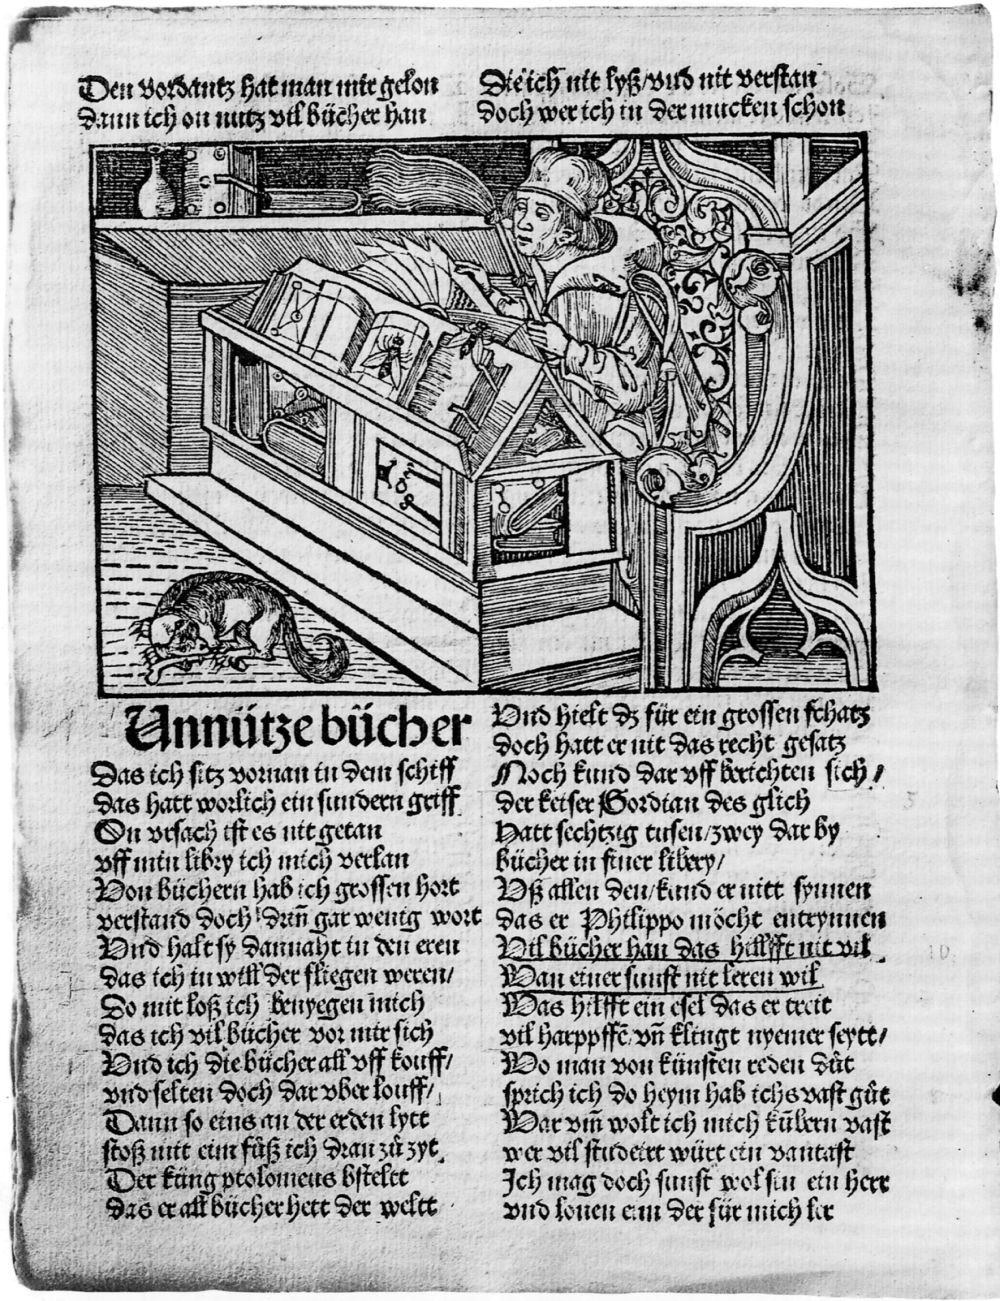 Den vordantz hat man mir gelon
dann ich on nutz vil bůcher han
Die ich nit lyß / vnd nit verstan
doch wer ich in der mucken schon
Unnütze bůcher
Das ich sitz vornan in dem schiff
das hatt worlich ein sundern griff
On vrsach ist es nit getan
vff min libry ich mich verlan
Von büchern hab ich grossen hort
verstand doch drin̄ gar wenig wort
Vnd halt sy dannaht in den eren
das ich in will der fliegen weren /
Do mit loß ich benyegen mich
das ich vil bücher vor mir sich
Vnd ich die bücher all vff kouff /
vnd selten doch dar vber louff /
Dann so eins an der erden lytt
stoß mit eim fůß ich dran zů zyt
Der küng ptolomeus bstelet
das er all bücher hett der weltt
Vnd hielt dz für ein grossen schatz
doch hatt er nit das recht gesatz
Noch kund dar vff berichten sich /
der keiser Gordian des glich
Hatt sechtzig tusen / zwey dar by
bücher in siner libery /
Vß allen den / kund er nitt synnen
das er Philippo möcht entrynnen
Vil bücher han das hillfft nit vil
Wan einer sunst nit leren wil
Was hilfft ein esel das er treit
vil harppffē vn̄ klingt nyemer seytt /
Wo man von künsten reden důt
sprich ich do heym hab ichs vast gůt
War vm̄ wolt ich mich kūbern vast
wer vil studeirt würt ein vantast
Ich mag doch sunst wol sin ein herr
vnd lonen eim der für mich ler